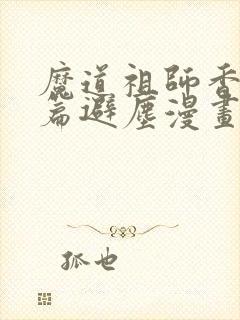 魔道祖師香
篇避塵漫畫
狐也